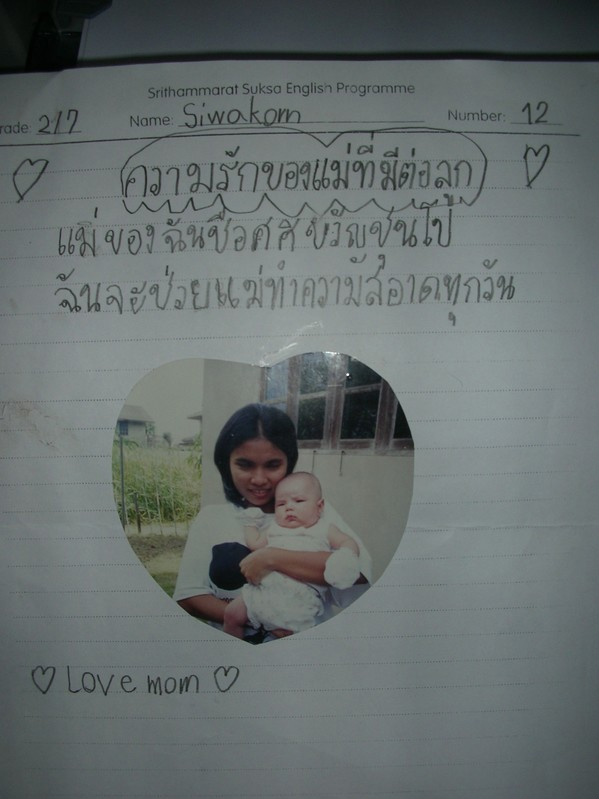 Srithammarat Suksa English Programme
rade: 2/7 Name: Siwakorn Number: 12
ความรักของแม่ที่มีต่อลูก
แม่ของฉันชื่อศศิขวัญชุนโป
ฉันจะช่วยแม่ทำความสะอาดทุกวัน
Love mom